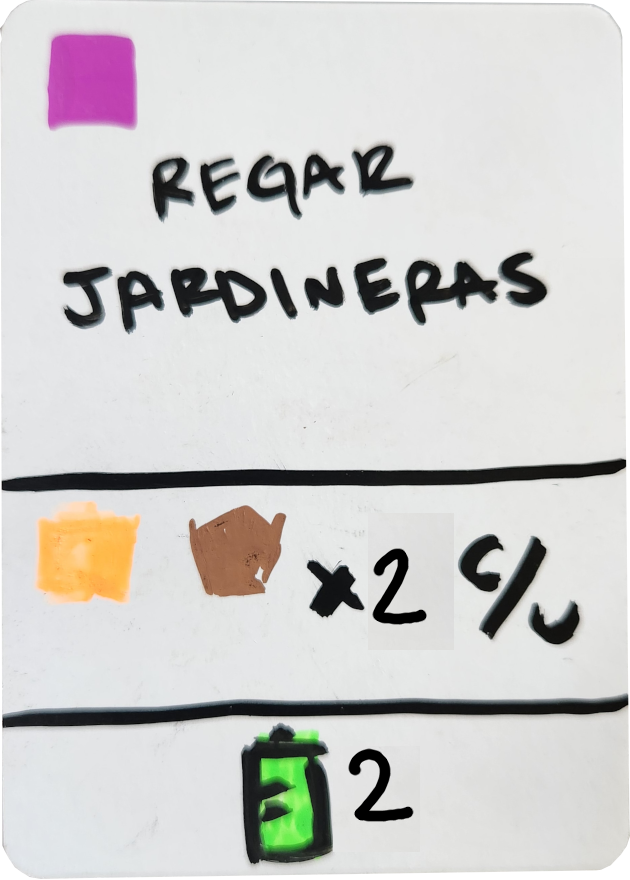 REGAR
JARDINERAS
x2 c/u
2